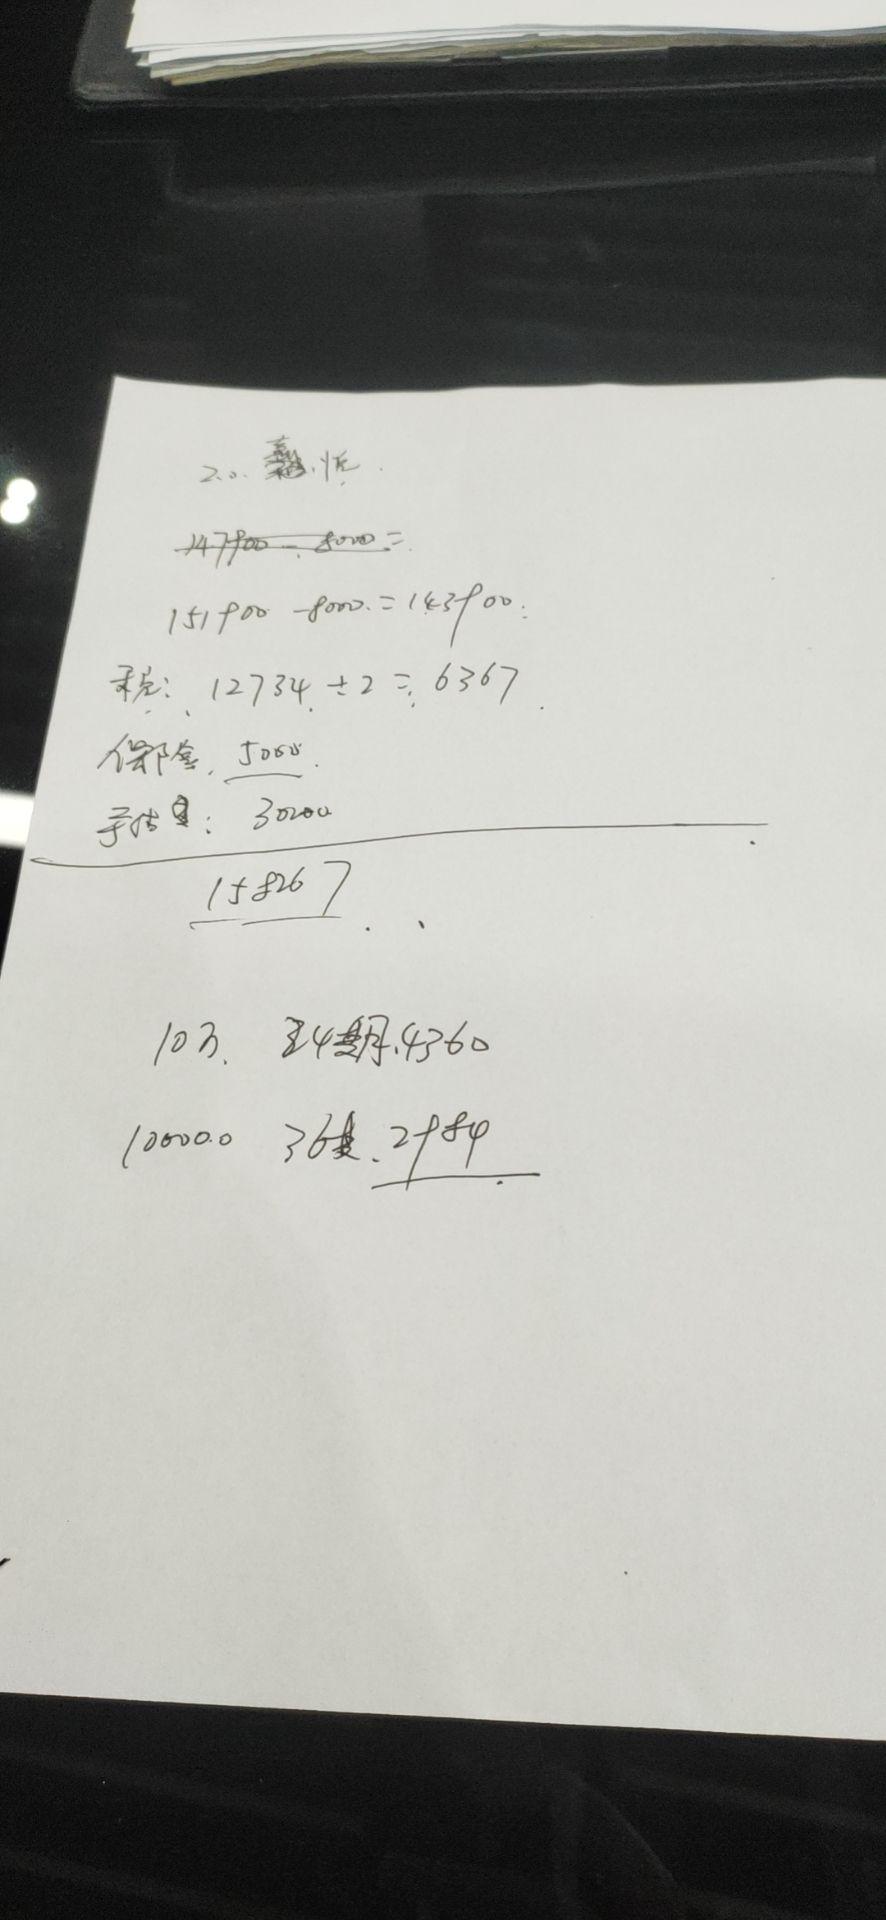 2.0.
147900 - 8000 =
151900 - 8000 = 143900
税: 12734 ÷ 2 = 6367
保险. 5000
: 3000
158267
10万. 24期. 4360
100000 36期. 2984